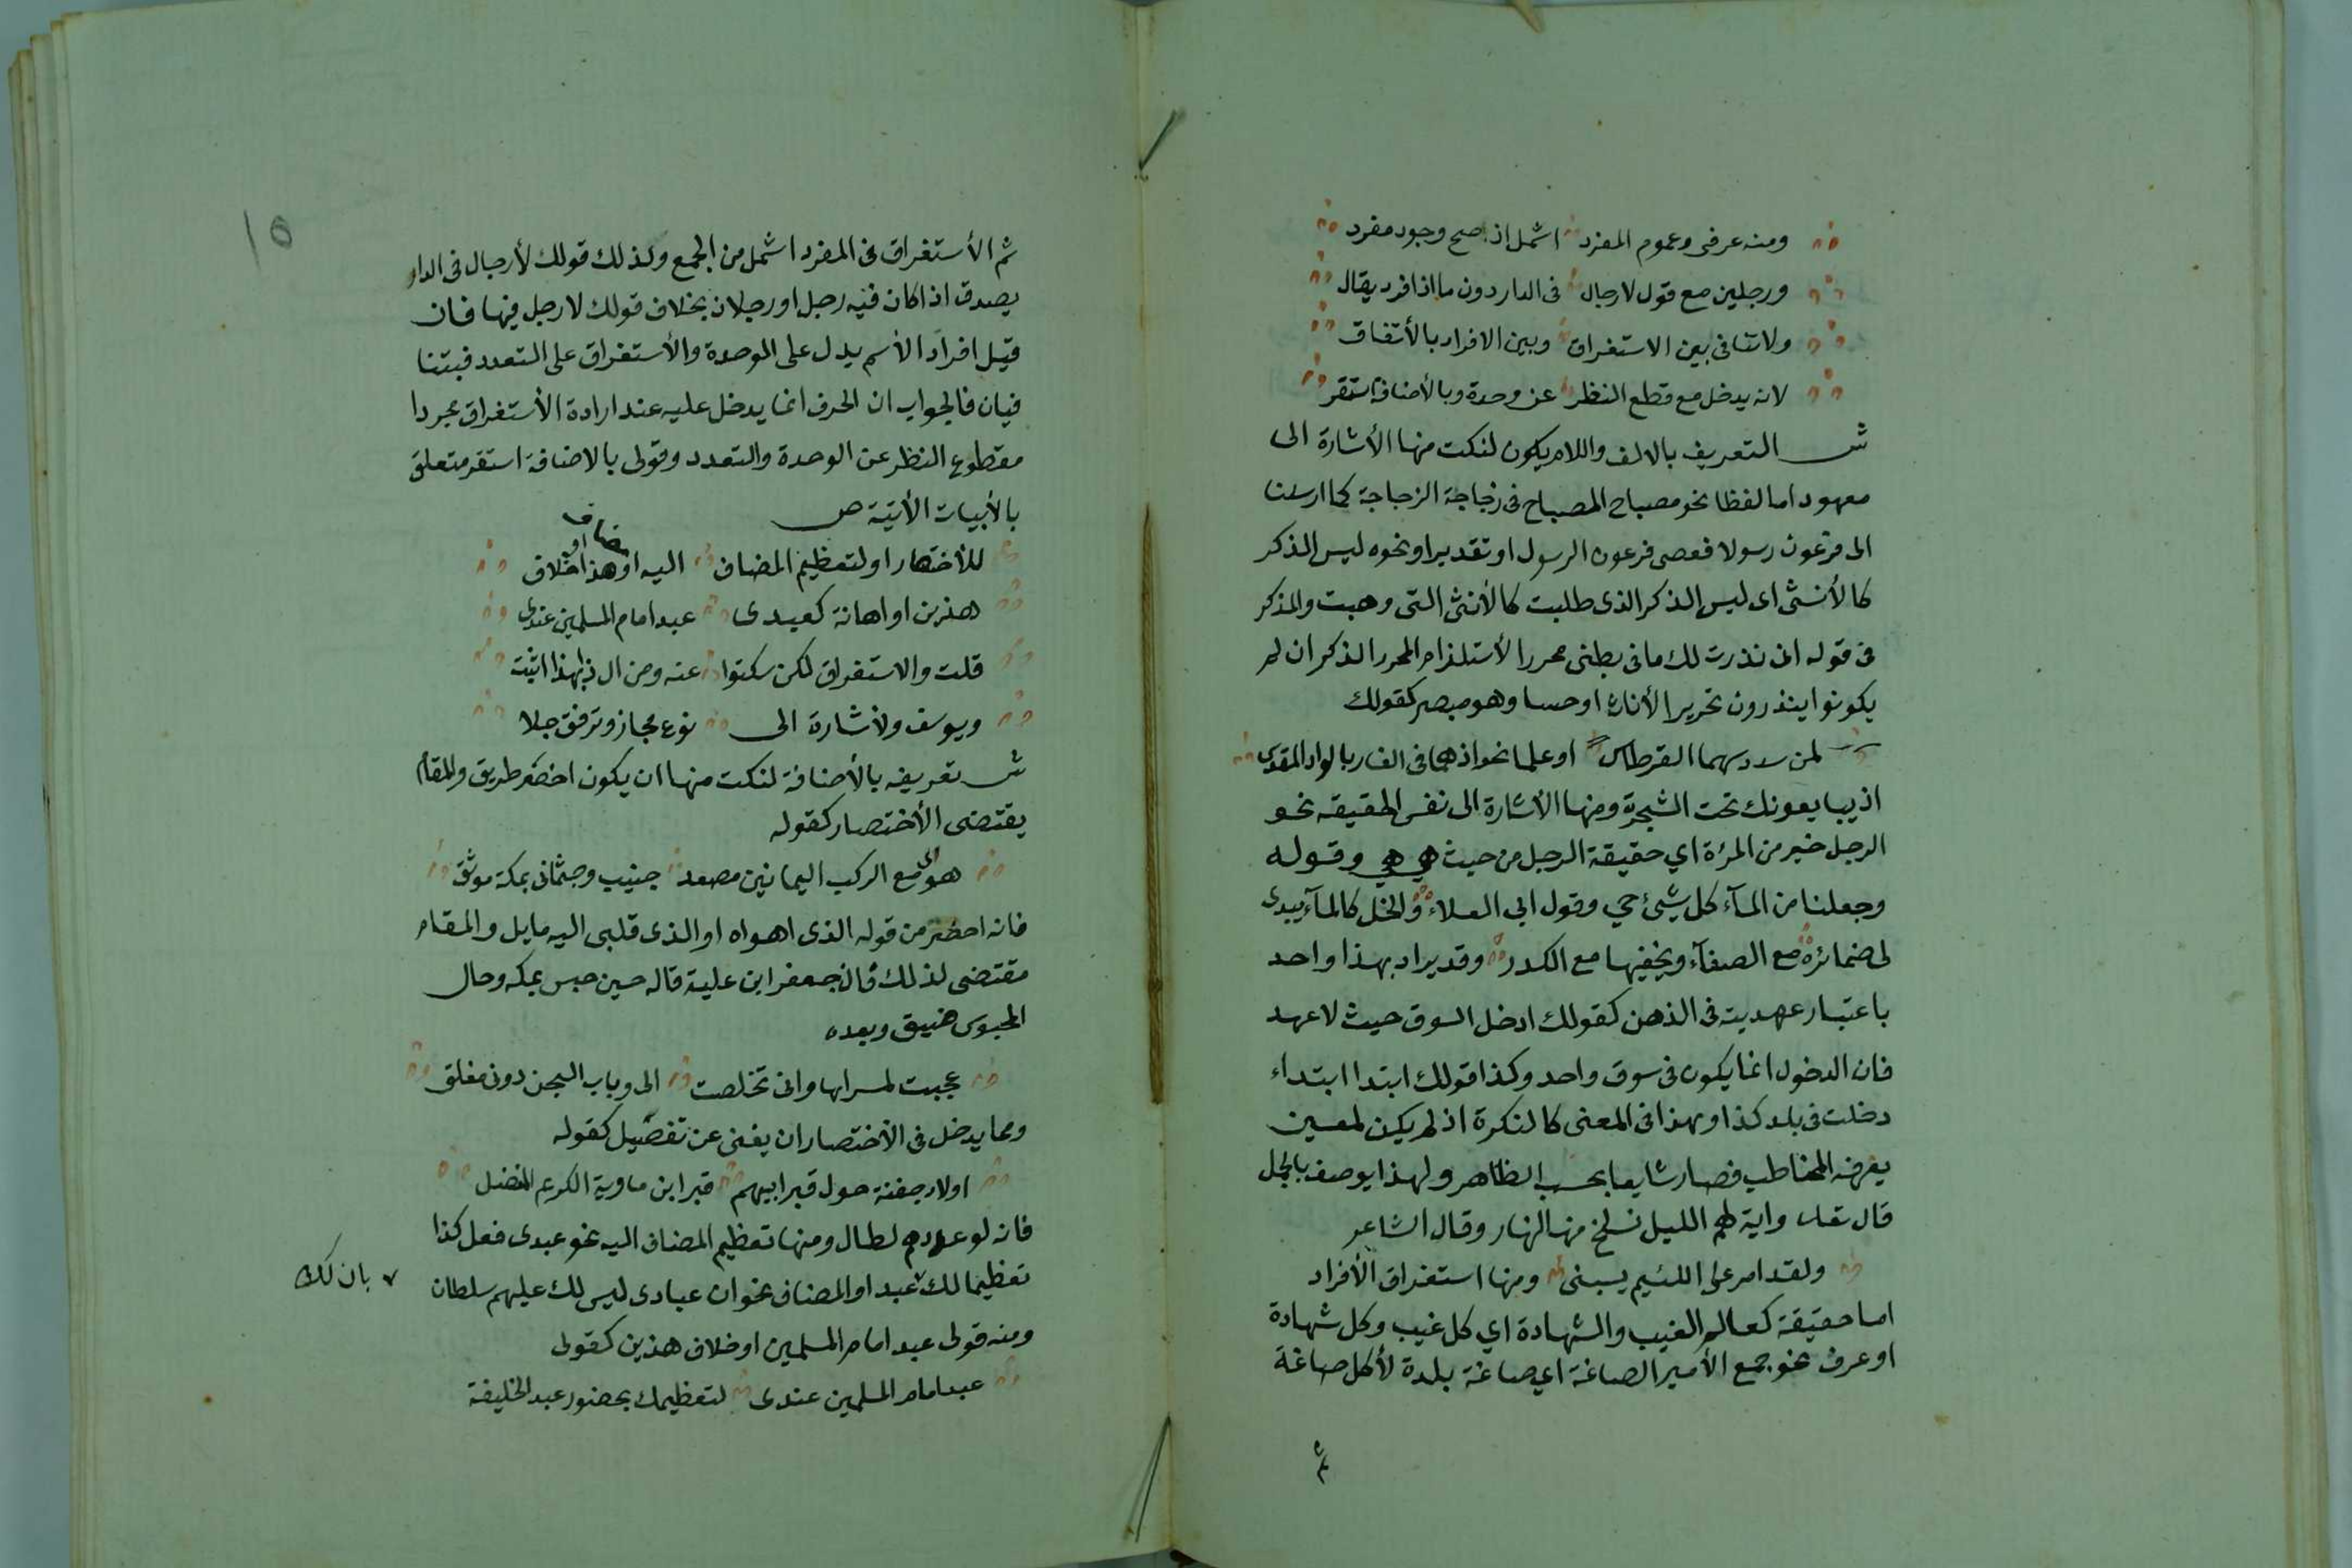 ومنه عرفى وعموم المفرد اشمل اذ صح وجود مفرد
ورجلين مع قول لا رجال فى الدار دون ما اذا افرد يقال
ولا تنافى بين الاستغراق وبين الافراد بالأتفاق
لانه يدخل مع قطع النظر عن وحدة وبالأضافة استقر
ش التعريف بالالف واللام يكون لنكت منها الأشارة الى
معهود اما لفظا نحو مصباح المصباح فى زجاجة الزجاجة كما ارسلنا
الى فرعون رسولا فعصى فرعون الرسول او تقديرا ونحوه ليس الذكر
كالأنثى اى ليس الذكر الذى طلبت كالأنثى التى وهبت والذكر
فى قوله انى نذرت لك ما فى بطنى محررا لأستلذام المحرر الذكر ان لم
يكونوا ينذرون تحرير الأناث او حسا وهو مبصر كقولك
لمن سدد سهما القرطاس او علما نحو اذ هما فى الغار بالواد المقدس
اذ يبايعونك تحت الشجرة ومنها الأشارة الى نفس الحقيقه نحو
الرجل خير من المرئة اي حقيقة الرجل من حيث هي هي وقوله
وجعلنا من المآء كل شيئ حي وقول ابي العلاء والخل كالمآء يبدى
لى ضمائره مع الصفآء ويخفيها مع الكدر وقد يراد بهذا واحد
باعتبار عهديته فى الذهن كقولك ادخل السوق حيث لا عهد
فان الدخول انما يكون فى سوق واحد وكذا قولك ابتدا ابتداء
دخلت فى بلد كذا وبهذا فى المعنى كالنكرة اذ لم يكن لمعين
يعرفه المخاطب فصار شايعا بحسب الظاهر ولهذا يوصف بالجمل
قال تعالى واية لهم الليل نسلخ منه النهار وقال الشاعر
ولقد امر على اللئيم يسبنى ومنها استغراق الأفراد
اما حقيقة كعالم الغيب والشهادة اي كل غيب وكل شهادة
او عرف نحو جمع الأمير الصاغة اي صاغة بلدة لأكل صاغة
ثم
١٥
ثم الأستغراق فى المفرد اشمل من الجمع ولذلك قولك لأرجال فى الدار
يصدق اذا كان فيه رجل او رجلان بخلاف قولك لا رجل فيها فان
قيل افراد الأسم يدل على الوحدة والأستغراق على التعدد فبتنا
فيان فالجواب ان الحرف انما يدخل عليه عند ارادة الأستغراق مجردا
مقطوع النظر عن الوحدة والتعدد وقولى بالاضافة استقر متعلق
بالأبيات الأتية ص
للأختصار او لتعظيم المضاف اليه او مضاف او هذا خلاف
هذين او اهانة كعبدى عبد امام المسلمين عندى
قلت والاستغراق لكن سكتوا عنه ومن ال ذا لهذا اثبت
ويوسف ولأشارة الى نوع مجاز وترفق جلا
ش تعريفه بالأضافة لنكت منها ان يكون اخضر طريق والمقام
يقتضى الأختصار كقوله
هواى مع الركب اليمانين مصعد جنيب وجثمانى بمكة موثق
فانه اخضر من قوله الذى اهواه او الذى قلبى اليه مايل والمقام
مقتضى لذلك فان جعفر ابن علية قاله حين حبس بمكه وحال
المحبوس ضيق وبعده
عجبت لمسراها وانى تخلصت الى وباب السجن دونى مغلق
ومما يدخل فى الأختصار ان يغنى عن تفصيل كقوله
اولاد جفنة حول قبر ابيهم قبر ابن ماوية الكريم المفضل
فانه لو عددهم لطال ومنها تعظيم المضاف اليه نحو عبدى فعل كذا
تعظيما لك عبد او المضاف نحو ان عبادى ليس لك عليهم سلطان
بان لك
ومنه قولى عبد امام المسلمين او خلاف هذين كقولى
عبد امام المسلمين عندى لتعظيمك بحضور عبد الخليفة